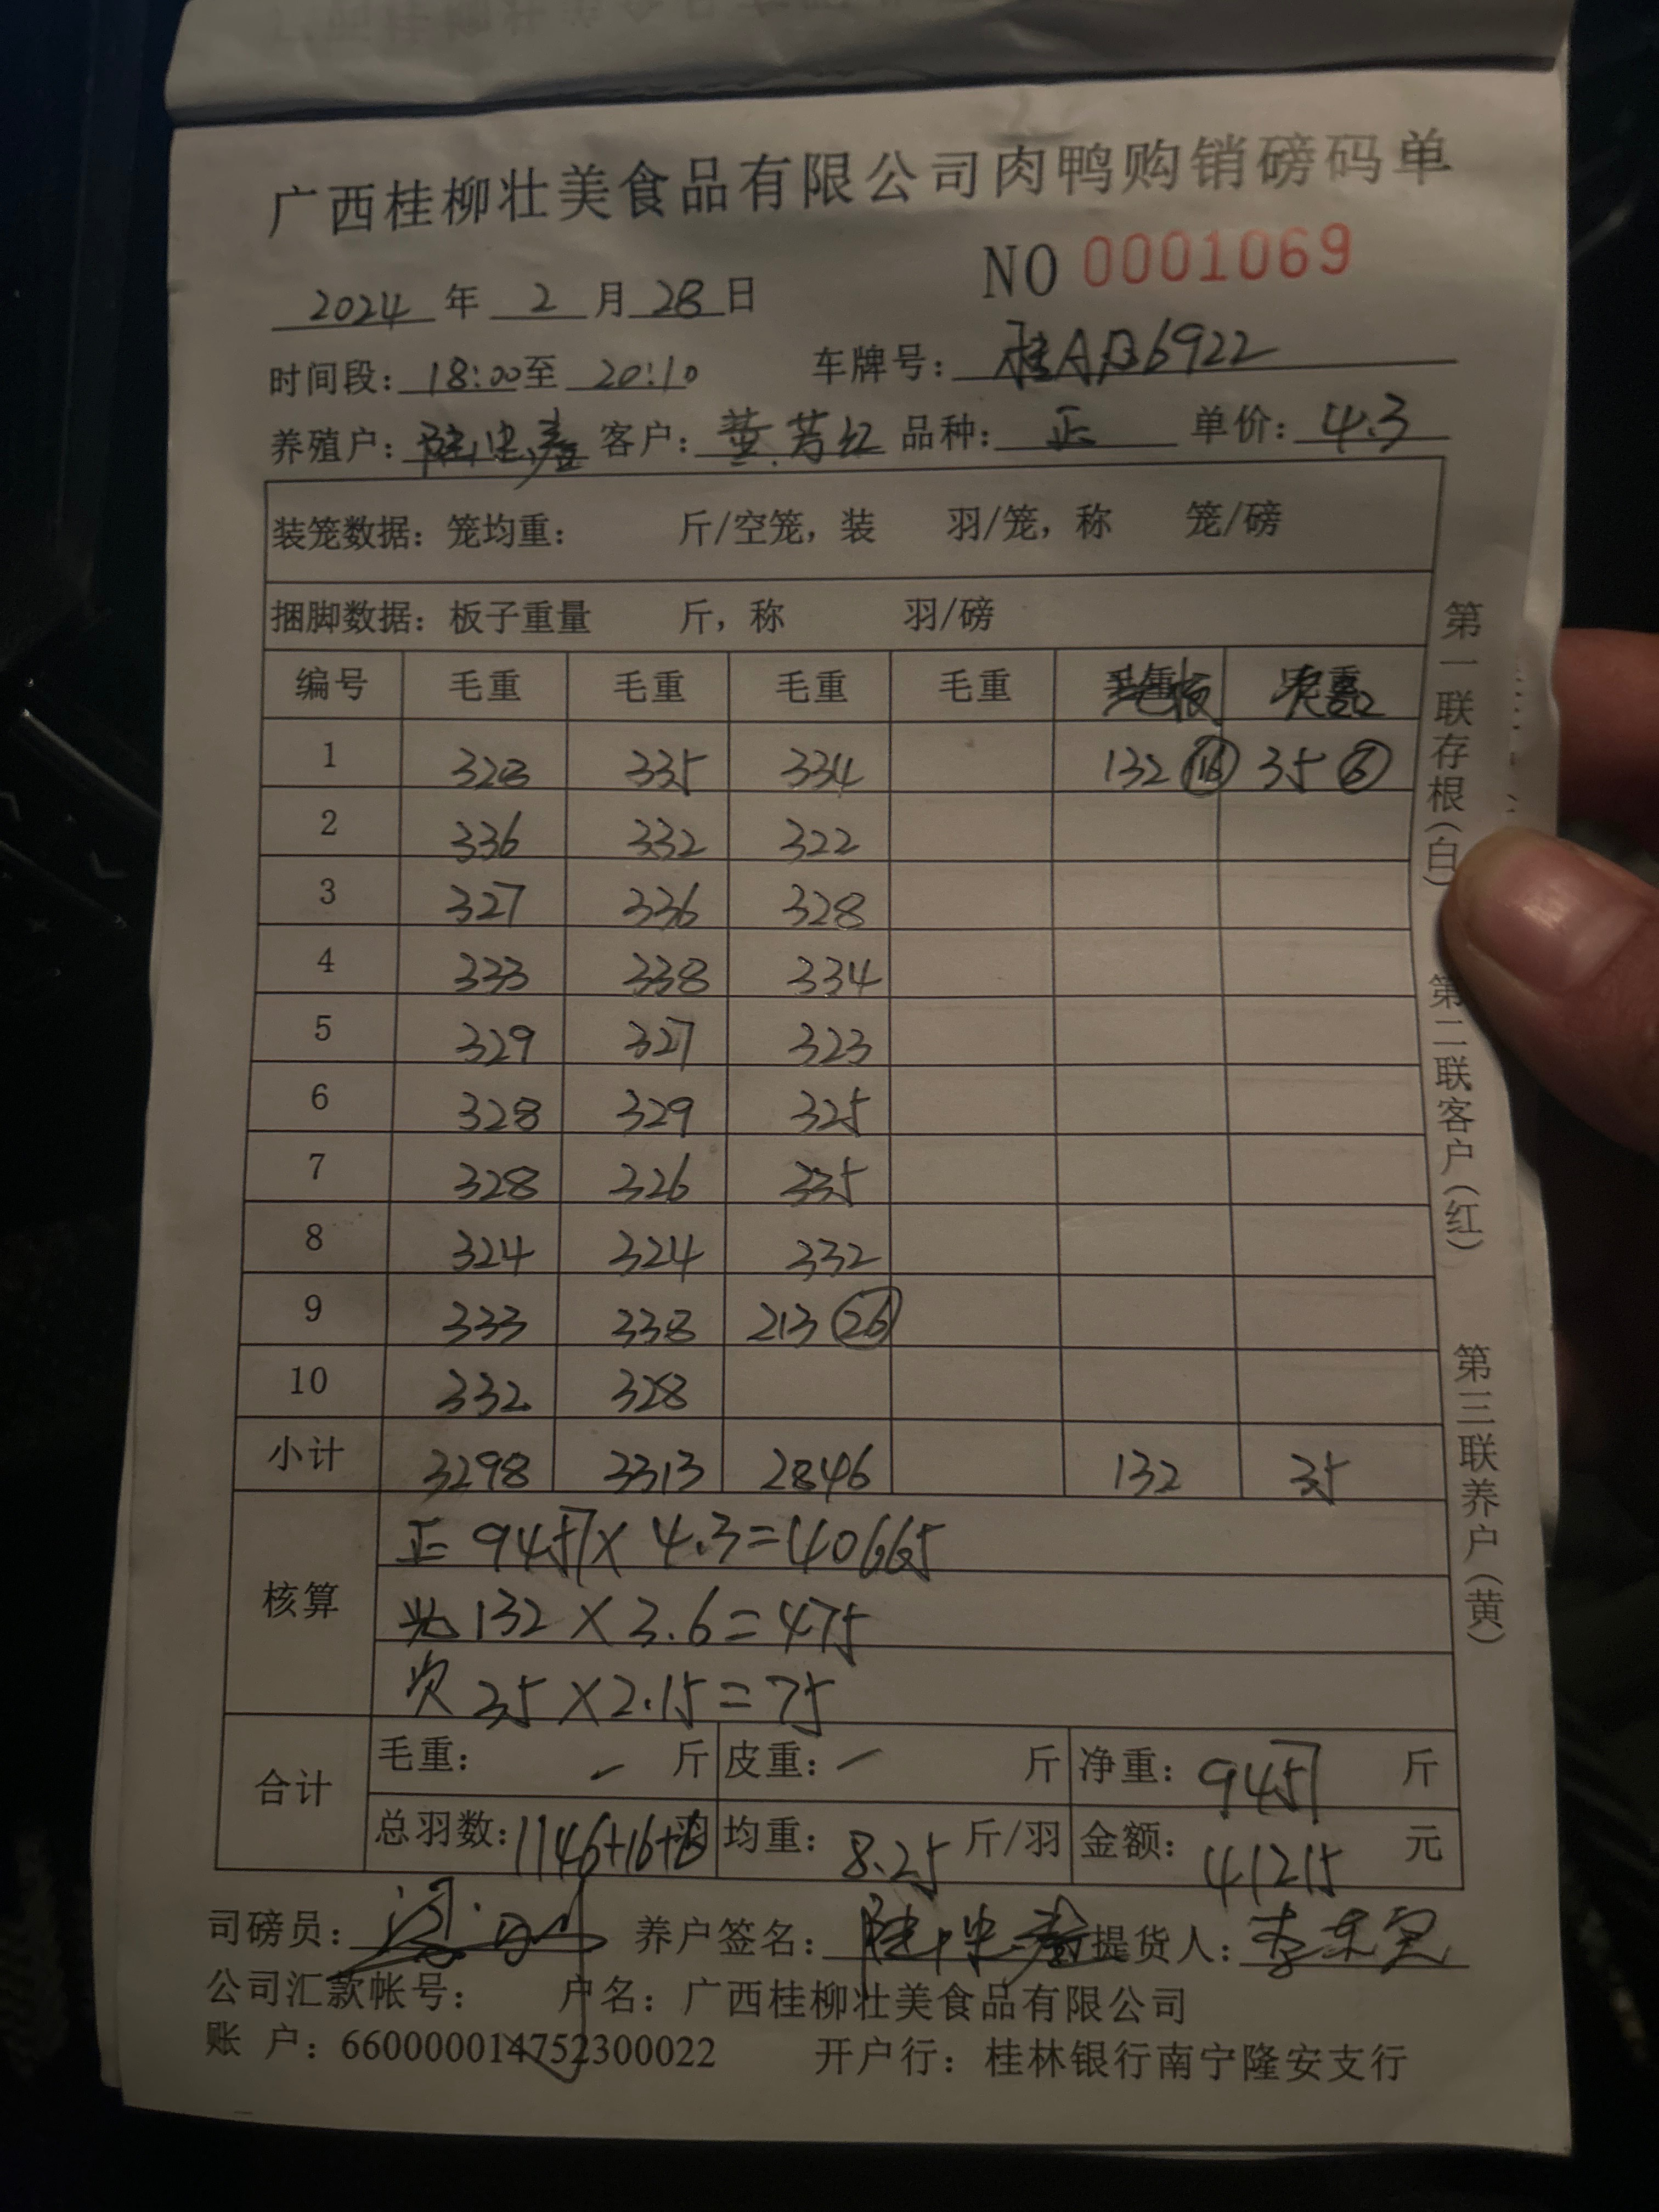 广西桂柳壮美食品有限公司肉鸭购销磅码单
NO 0001069
2024 年 2 月 28 日
时间段: 18:00 至 20:10 车牌号: 桂AB6922
养殖户: 陆忠 客户: 黄芳红 品种: 正 单价: 4.3
装笼数据: 笼均重: 斤/空笼, 装 羽/笼, 称 笼/磅
捆脚数据: 板子重量 斤, 称 羽/磅
编号 毛重 毛重 毛重 毛重
1 328 335 334 132 16 35 6
2 336 332 322
3 327 336 328
4 333 338 334
5 329 327 323
6 328 329 325
7 328 326 335
8 324 324 332
9 333 338 213 26
10 332 328
小计 3298 3313 2846 132 35
核算
正 9457 × 4.3 = 40665
光 132 × 3.6 = 475
次 35 × 2.15 = 75
合计
毛重: - 斤 皮重: - 斤 净重: 9457 斤
总羽数: 1146+16+6 羽 均重: 8.25 斤/羽 金额: 41215 元
司磅员: 养户签名: 陆忠 提货人: 李
公司汇款帐号: 户名: 广西桂柳壮美食品有限公司
账 户: 660000014752300022 开户行: 桂林银行南宁隆安支行
第一联存根(白) 第二联客户(红) 第三联养户(黄)